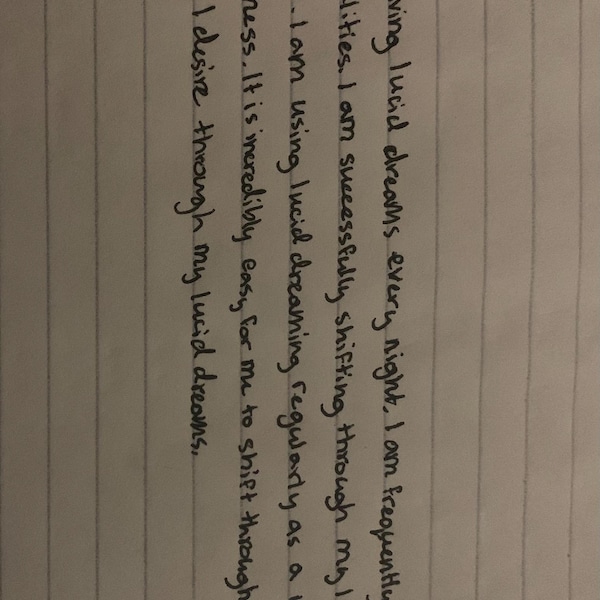 ving lucid dreams every night. I am frequently
lities. I am successfully shifting through my l
. I am using lucid dreaming regularly as a
ness. It is incredibly easy for me to shift through
I desire through my lucid dreams.